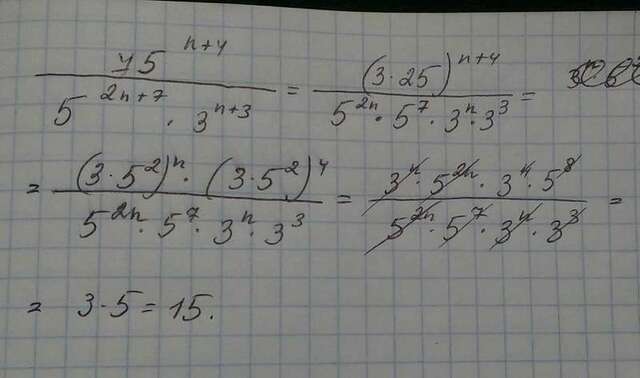 75^{n+4} / (5^{2n+7} · 3^{n+3}) = (3·25)^{n+4} / (5^{2n} · 5^7 · 3^n · 3^3) =
= (3·5^2)^n · (3·5^2)^4 / (5^{2n} · 5^7 · 3^n · 3^3) = 3^n · 5^{2n} · 3^4 · 5^8 / (5^{2n} · 5^7 · 3^n · 3^3) =
= 3·5 = 15.